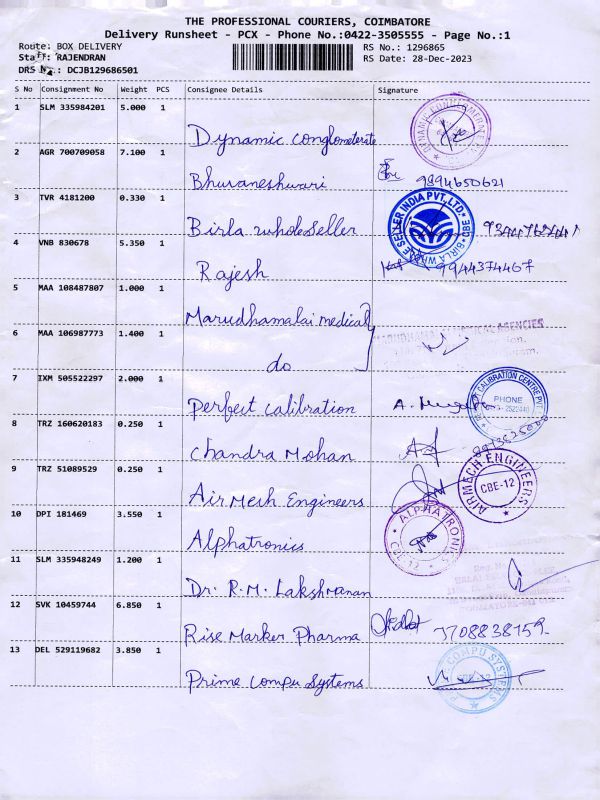 THE PROFESSIONAL COURIERS, COIMBATORE
Delivery Runsheet - PCX - Phone No.:0422-3505555 - Page No.:1
Route: BOX DELIVERY RS No.: 1296865
Staff: RAJENDRAN RS Date: 28-Dec-2023
DRS No.: DCJB129686501
S No Consignment No Weight PCS Consignee Details Signature
1 SLM 335984201 5.000 1
Dynamic conglometerate DYNAMIC CONGLOMERATE
2 AGR 700709058 7.100 1
Bhuvaneshwari 9894650621
3 TVR 4181200 0.330 1
Birla wholeseller BIRLA WHOLE SELLER INDIA PVT. LTD. CBE
4 VNB 830678 5.350 1
Rajesh 9944374467
5 MAA 108487807 1.000 1
Marudhamalai medical AGENCIES
6 MAA 106987773 1.400 1
do
7 IXM 505522297 2.000 1
Perfect calibration CALIBRATION CENTRE PVT PHONE
8 TRZ 160620183 0.250 1
Chandra Mohan
9 TRZ 51089529 0.250 1
AirMesh Engineers AIRMECH ENGINEERS CBE-12
10 DPI 181469 3.550 1
Alphatronics ALPHATRONICS
11 SLM 335948249 1.200 1
Dr. R.M. Lakshmanan
12 SVK 10459744 6.850 1
Rise Marker Pharma 7708838159
13 DEL 529119682 3.850 1
Prime Compu Systems COMPU SYSTEMS